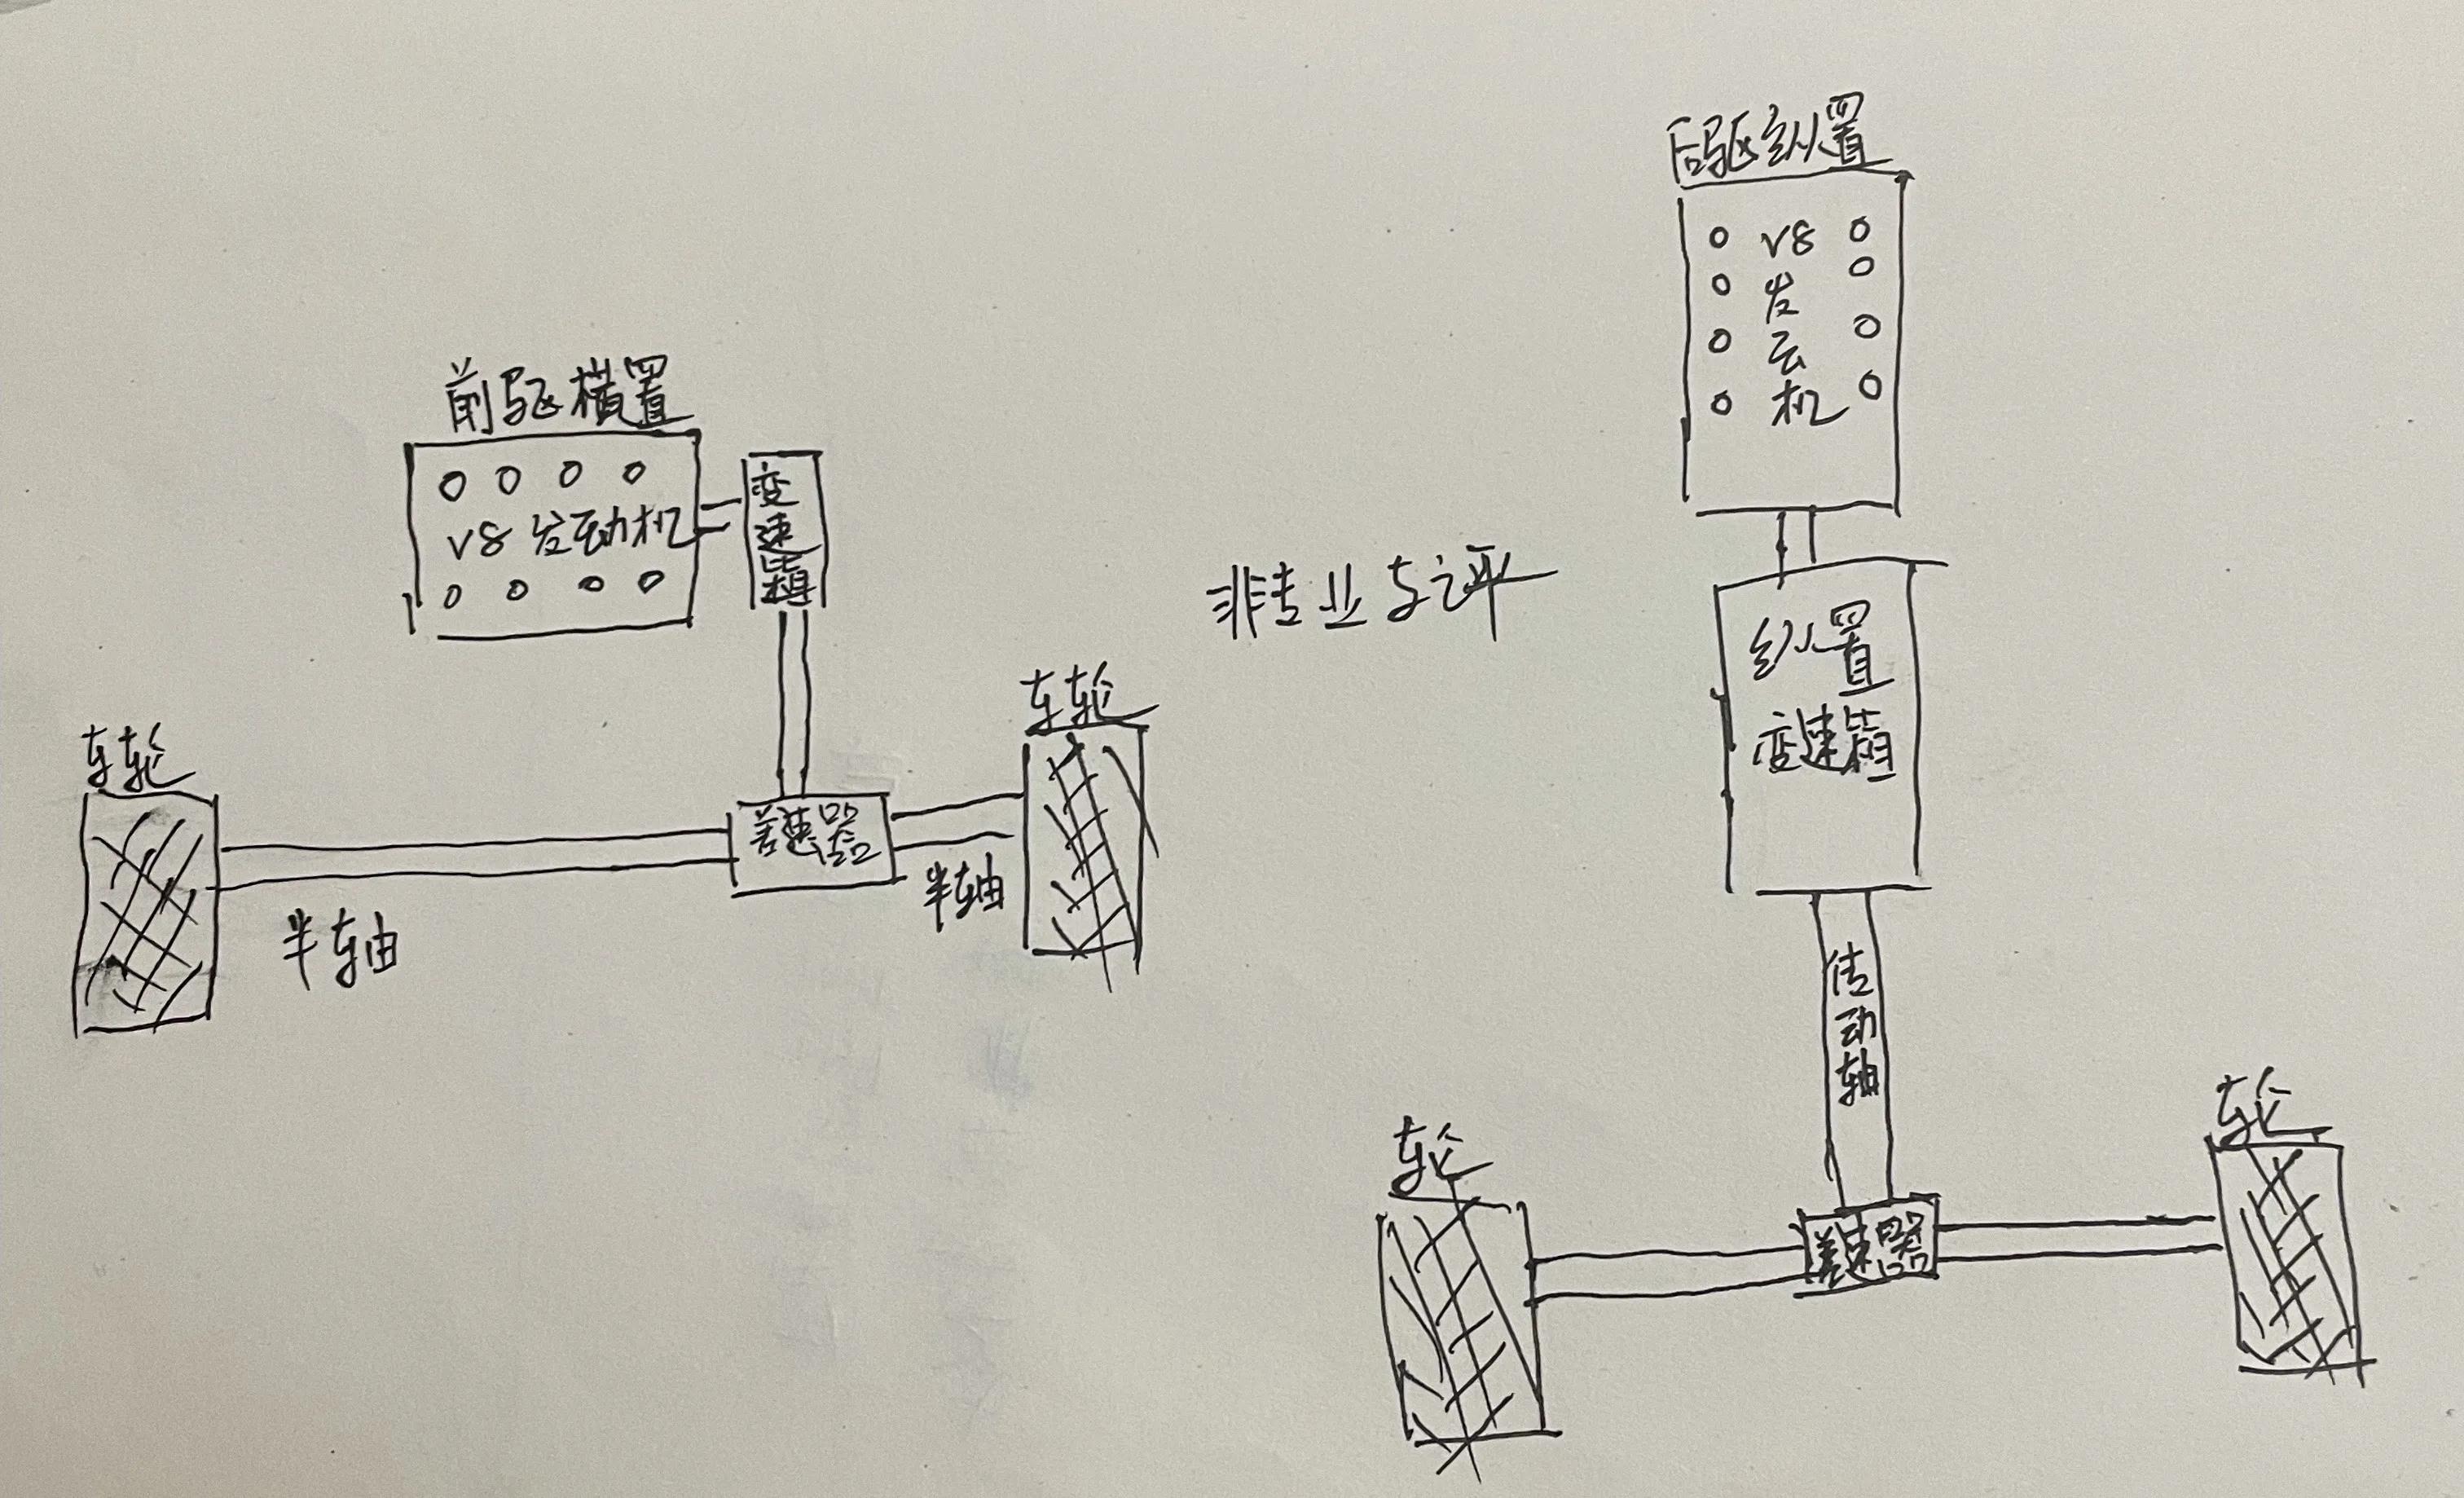 前驱横置
V8发动机
变速箱
车轮
差速器
半轴
车轮
半轴
非专业车评
后驱纵置
V8发动机
纵置
变速箱
传动轴
轮
差速器
轮